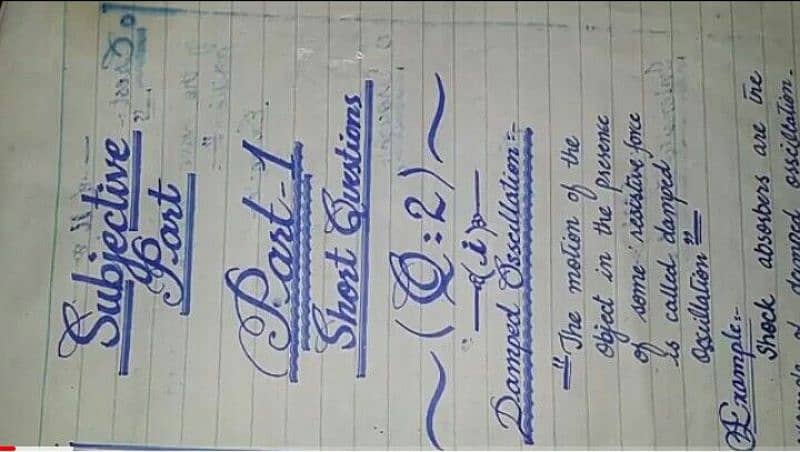 "Subjective
Part"
Part-1
Short Questions
~(Q:2)~
(i)
Damped Osscillation:-
"The motion of the
object in the presence
of some resistive force
is called damped
Oscillation"
Example:-
Shock absorbers are the
of damped osscillation.